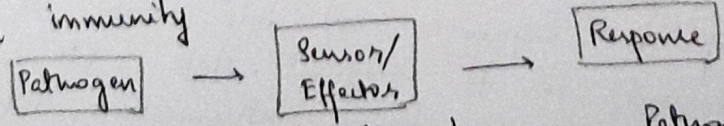 immunity
Pathogen → Sensor/ Effector → Response